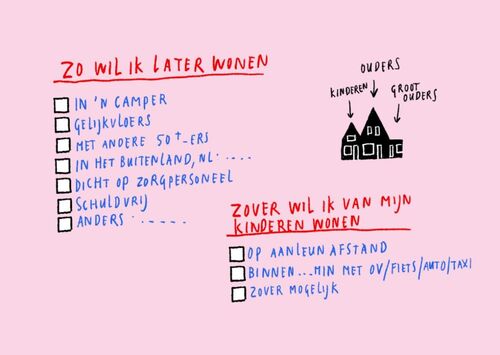 ZO WIL IK LATER WONEN
IN 'N CAMPER
GELIJKVLOERS
MET ANDERE 50+-ERS
IN HET BUITENLAND, NL: ....
DICHT OP ZORGPERSONEEL
SCHULDVRIJ
ANDERS : .....
OUDERS
KINDEREN
GROOT
OUDERS
ZOVER WIL IK VAN MIJN
KINDEREN WONEN
OP AANLEUN AFSTAND
BINNEN ... MIN MET OV/FIETS/AUTO/TAXI
ZOVER MOGELIJK